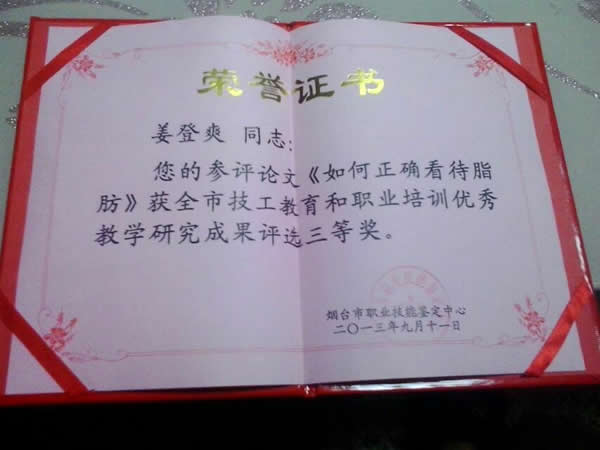 荣誉证书
姜登爽 同志：
您的参评论文《如何正确看待脂
肪》获全市技工教育和职业培训优秀
教学研究成果评选三等奖。
烟台市职业技能鉴定中心
二〇一三年九月十一日